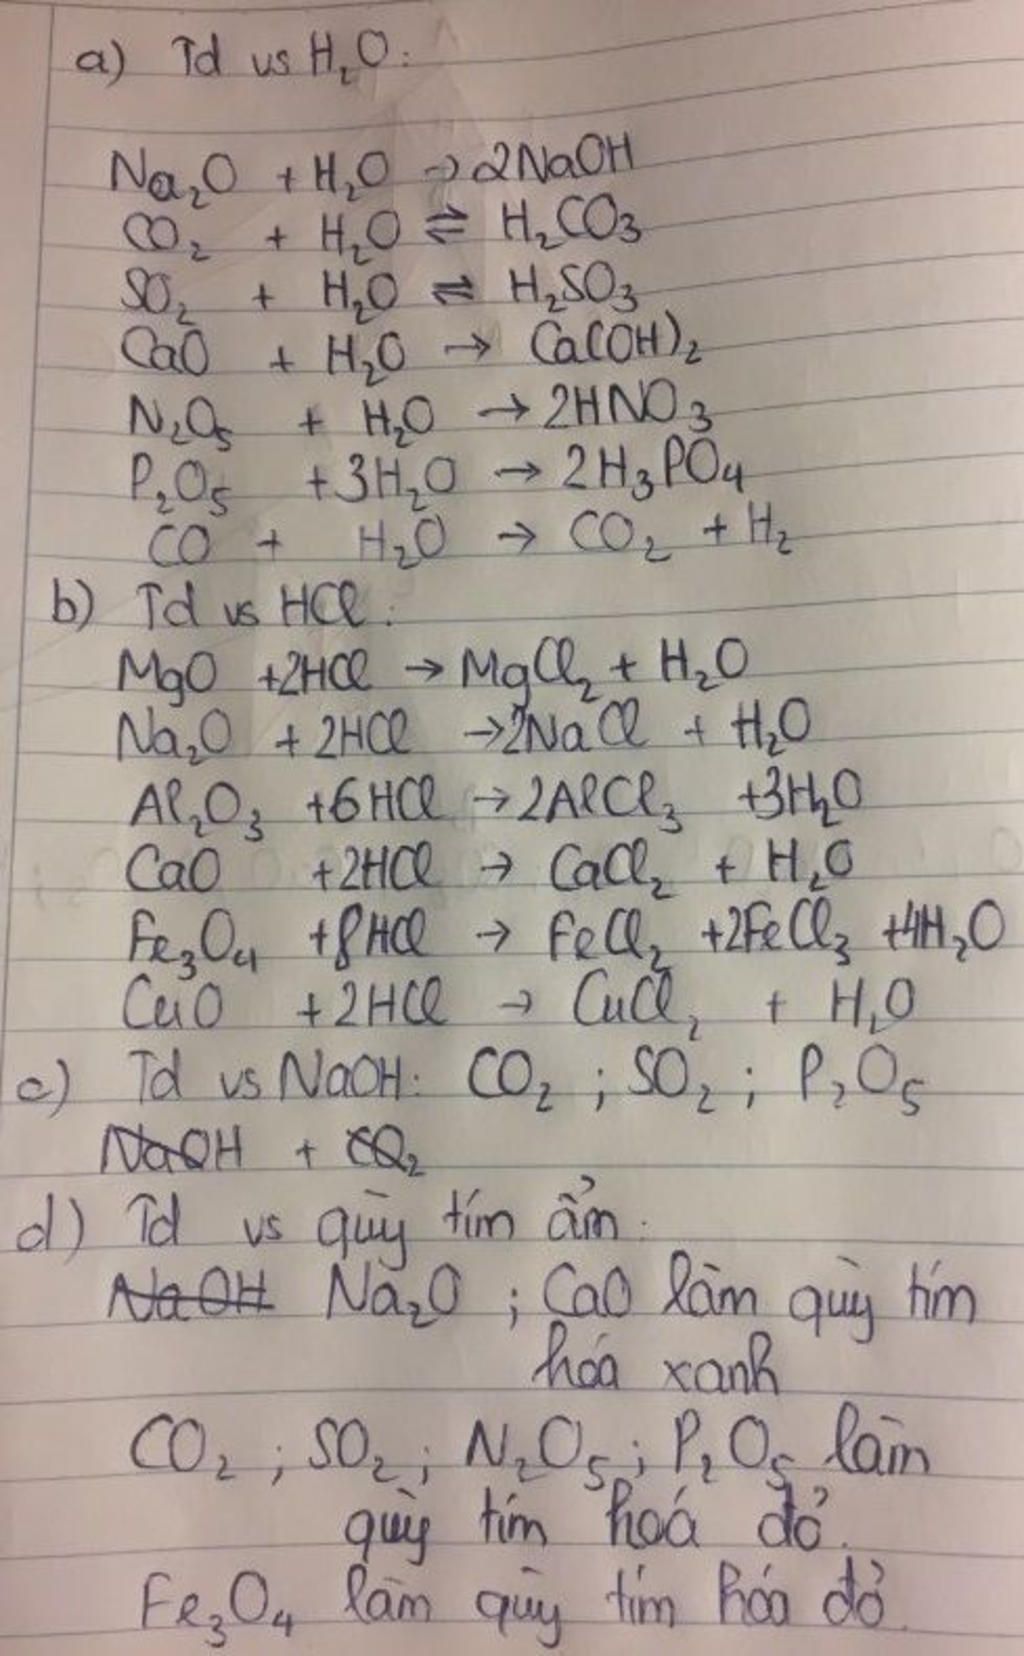 a) Td vs H₂O:
Na₂O + H₂O → 2NaOH
CO₂ + H₂O ⇌ H₂CO₃
SO₂ + H₂O ⇌ H₂SO₃
CaO + H₂O → Ca(OH)₂
N₂O₅ + H₂O → 2HNO₃
P₂O₅ +3H₂O → 2H₃PO₄
CO + H₂O → CO₂ + H₂
b) Td vs HCl:
MgO +2HCl → MgCl₂ + H₂O
Na₂O + 2HCl → 2NaCl + H₂O
Al₂O₃ +6HCl → 2AlCl₃ +3H₂O
CaO +2HCl → CaCl₂ + H₂O
Fe₃O₄ +8HCl → FeCl₂ +2FeCl₃ +4H₂O
CuO +2HCl → CuCl₂ + H₂O
c) Td vs NaOH: CO₂ ; SO₂ ; P₂O₅
NaOH + CO₂
d) Td vs quỳ tím ẩm:
NaOH Na₂O ; CaO làm quỳ tím
hóa xanh
CO₂ ; SO₂ ; N₂O₅ ; P₂O₅ làm
quỳ tím hoá đỏ.
Fe₃O₄ làm quỳ tím hóa đỏ.